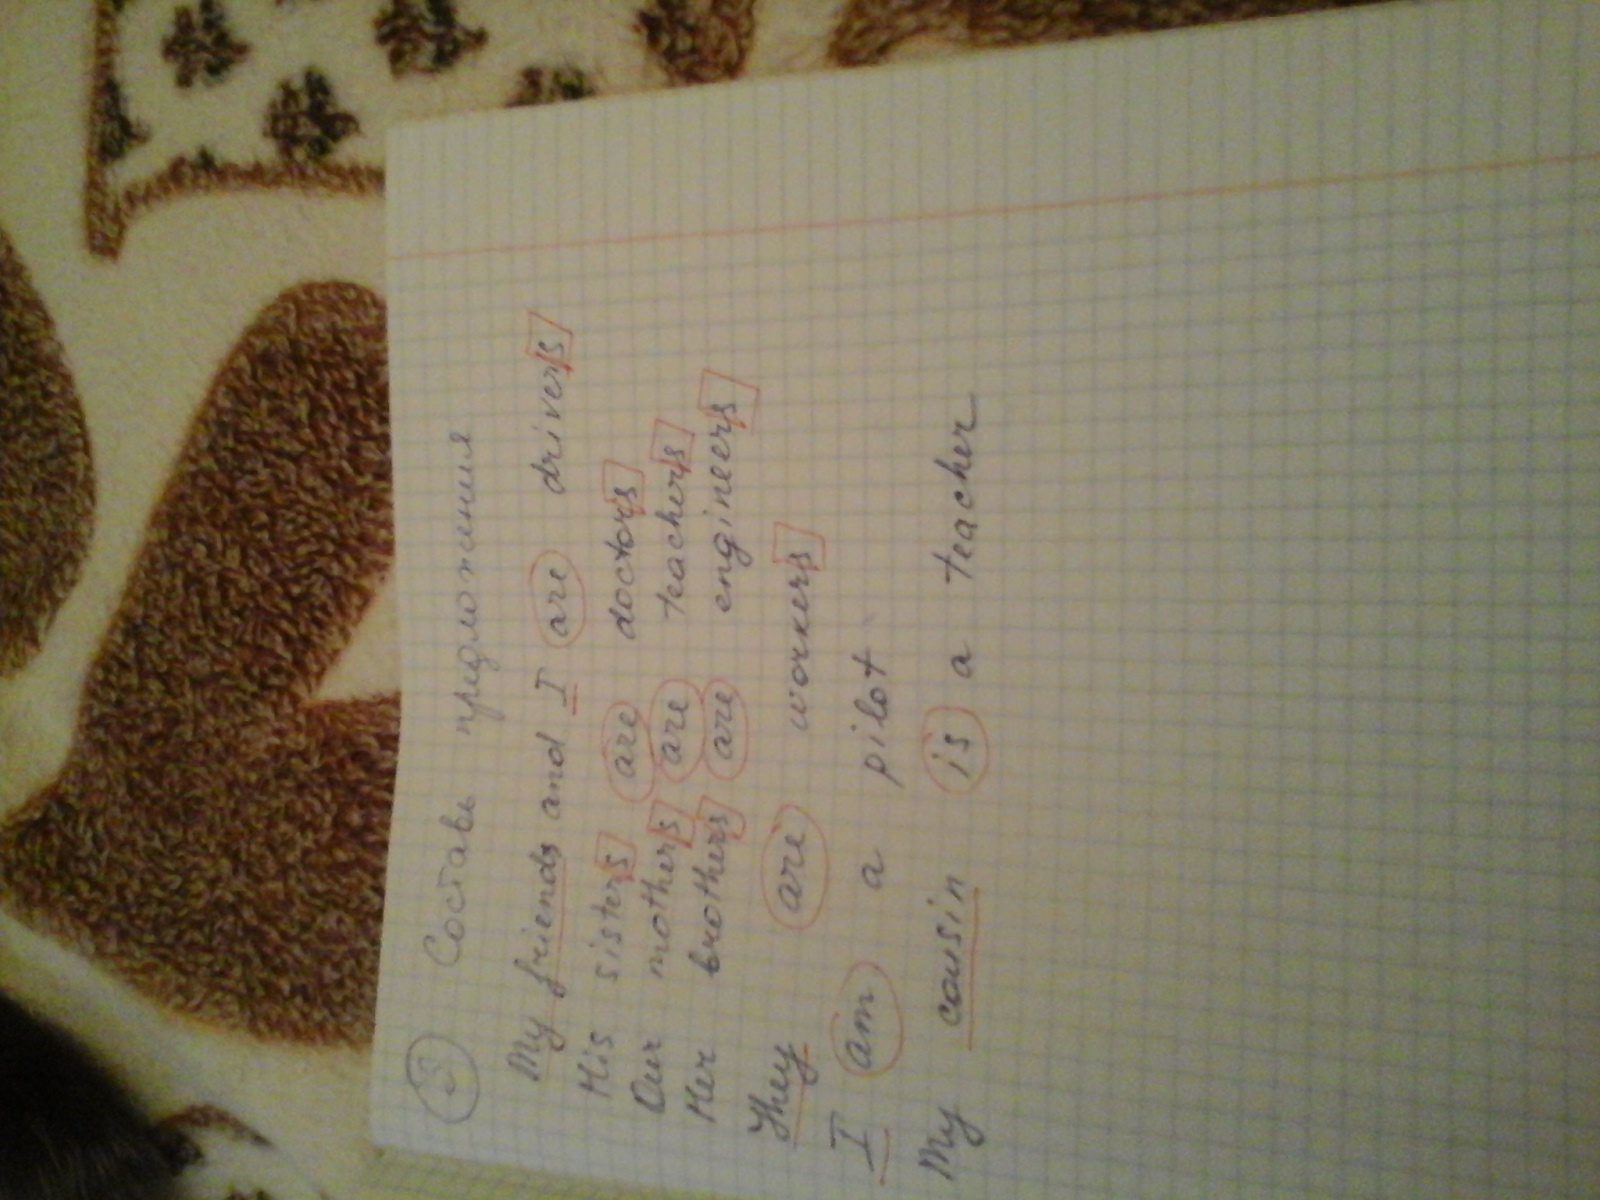 ③ Составь предложения
My friends and I are drivers
His sisters are doctors
Our mothers are teachers
Her brothers are engineers
They are workers
I am a pilot
My cousin is a teacher